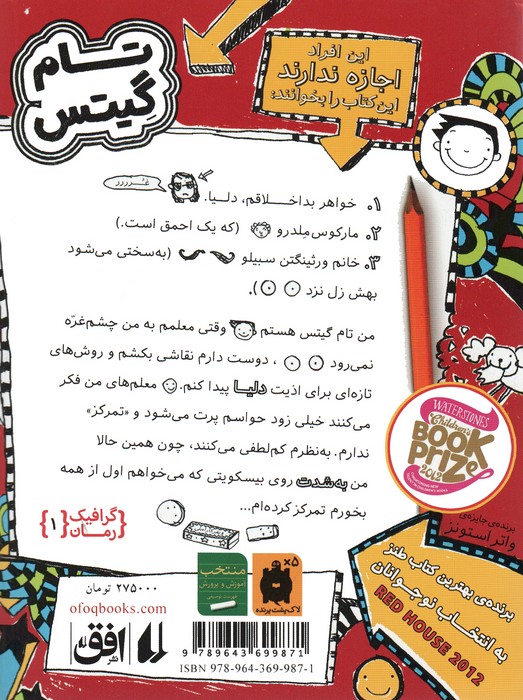 تام
گیتس
این افراد
اجازه ندارند
این کتاب را بخوانند:
۱. خواهر بداخلاقم، دلیا.
غـررررر
۲. مارکوس مِلدرو (که یک احمق است.)
۳. خانم ورثینگتن سبیلو (به‌سختی می‌شود
بهش زل نزد).
من تام گیتس هستم وقتی معلمم به من چشم‌غرّه
نمی‌رود، دوست دارم نقاشی بکشم و روش‌های
تازه‌ای برای اذیت دلیا پیدا کنم. معلم‌های من فکر
می‌کنند خیلی زود حواسم پرت می‌شود و «تمرکز»
ندارم. به‌نظرم کم‌لطفی می‌کنند، چون همین حالا
من به‌شدت روی بیسکویتی که می‌خواهم اول از همه
بخورم تمرکز کرده‌ام...
گرافیک
رمان
{۱}
WATERSTONES
Children's
BOOK
PRIZE
2012
برنده‌ی جایزه‌ی
واتراستونز
برنده‌ی بهترین کتاب طنز
به انتخاب نوجوانان
RED HOUSE 2012
۲۷۵۰۰۰ تومان
ofoqbooks.com
نشر افق
منتخب
آموزش و پرورش
فهرست توصیفی
۵×
لاک‌پشت پرنده
9 789643 699871
ISBN 978-964-369-987-1